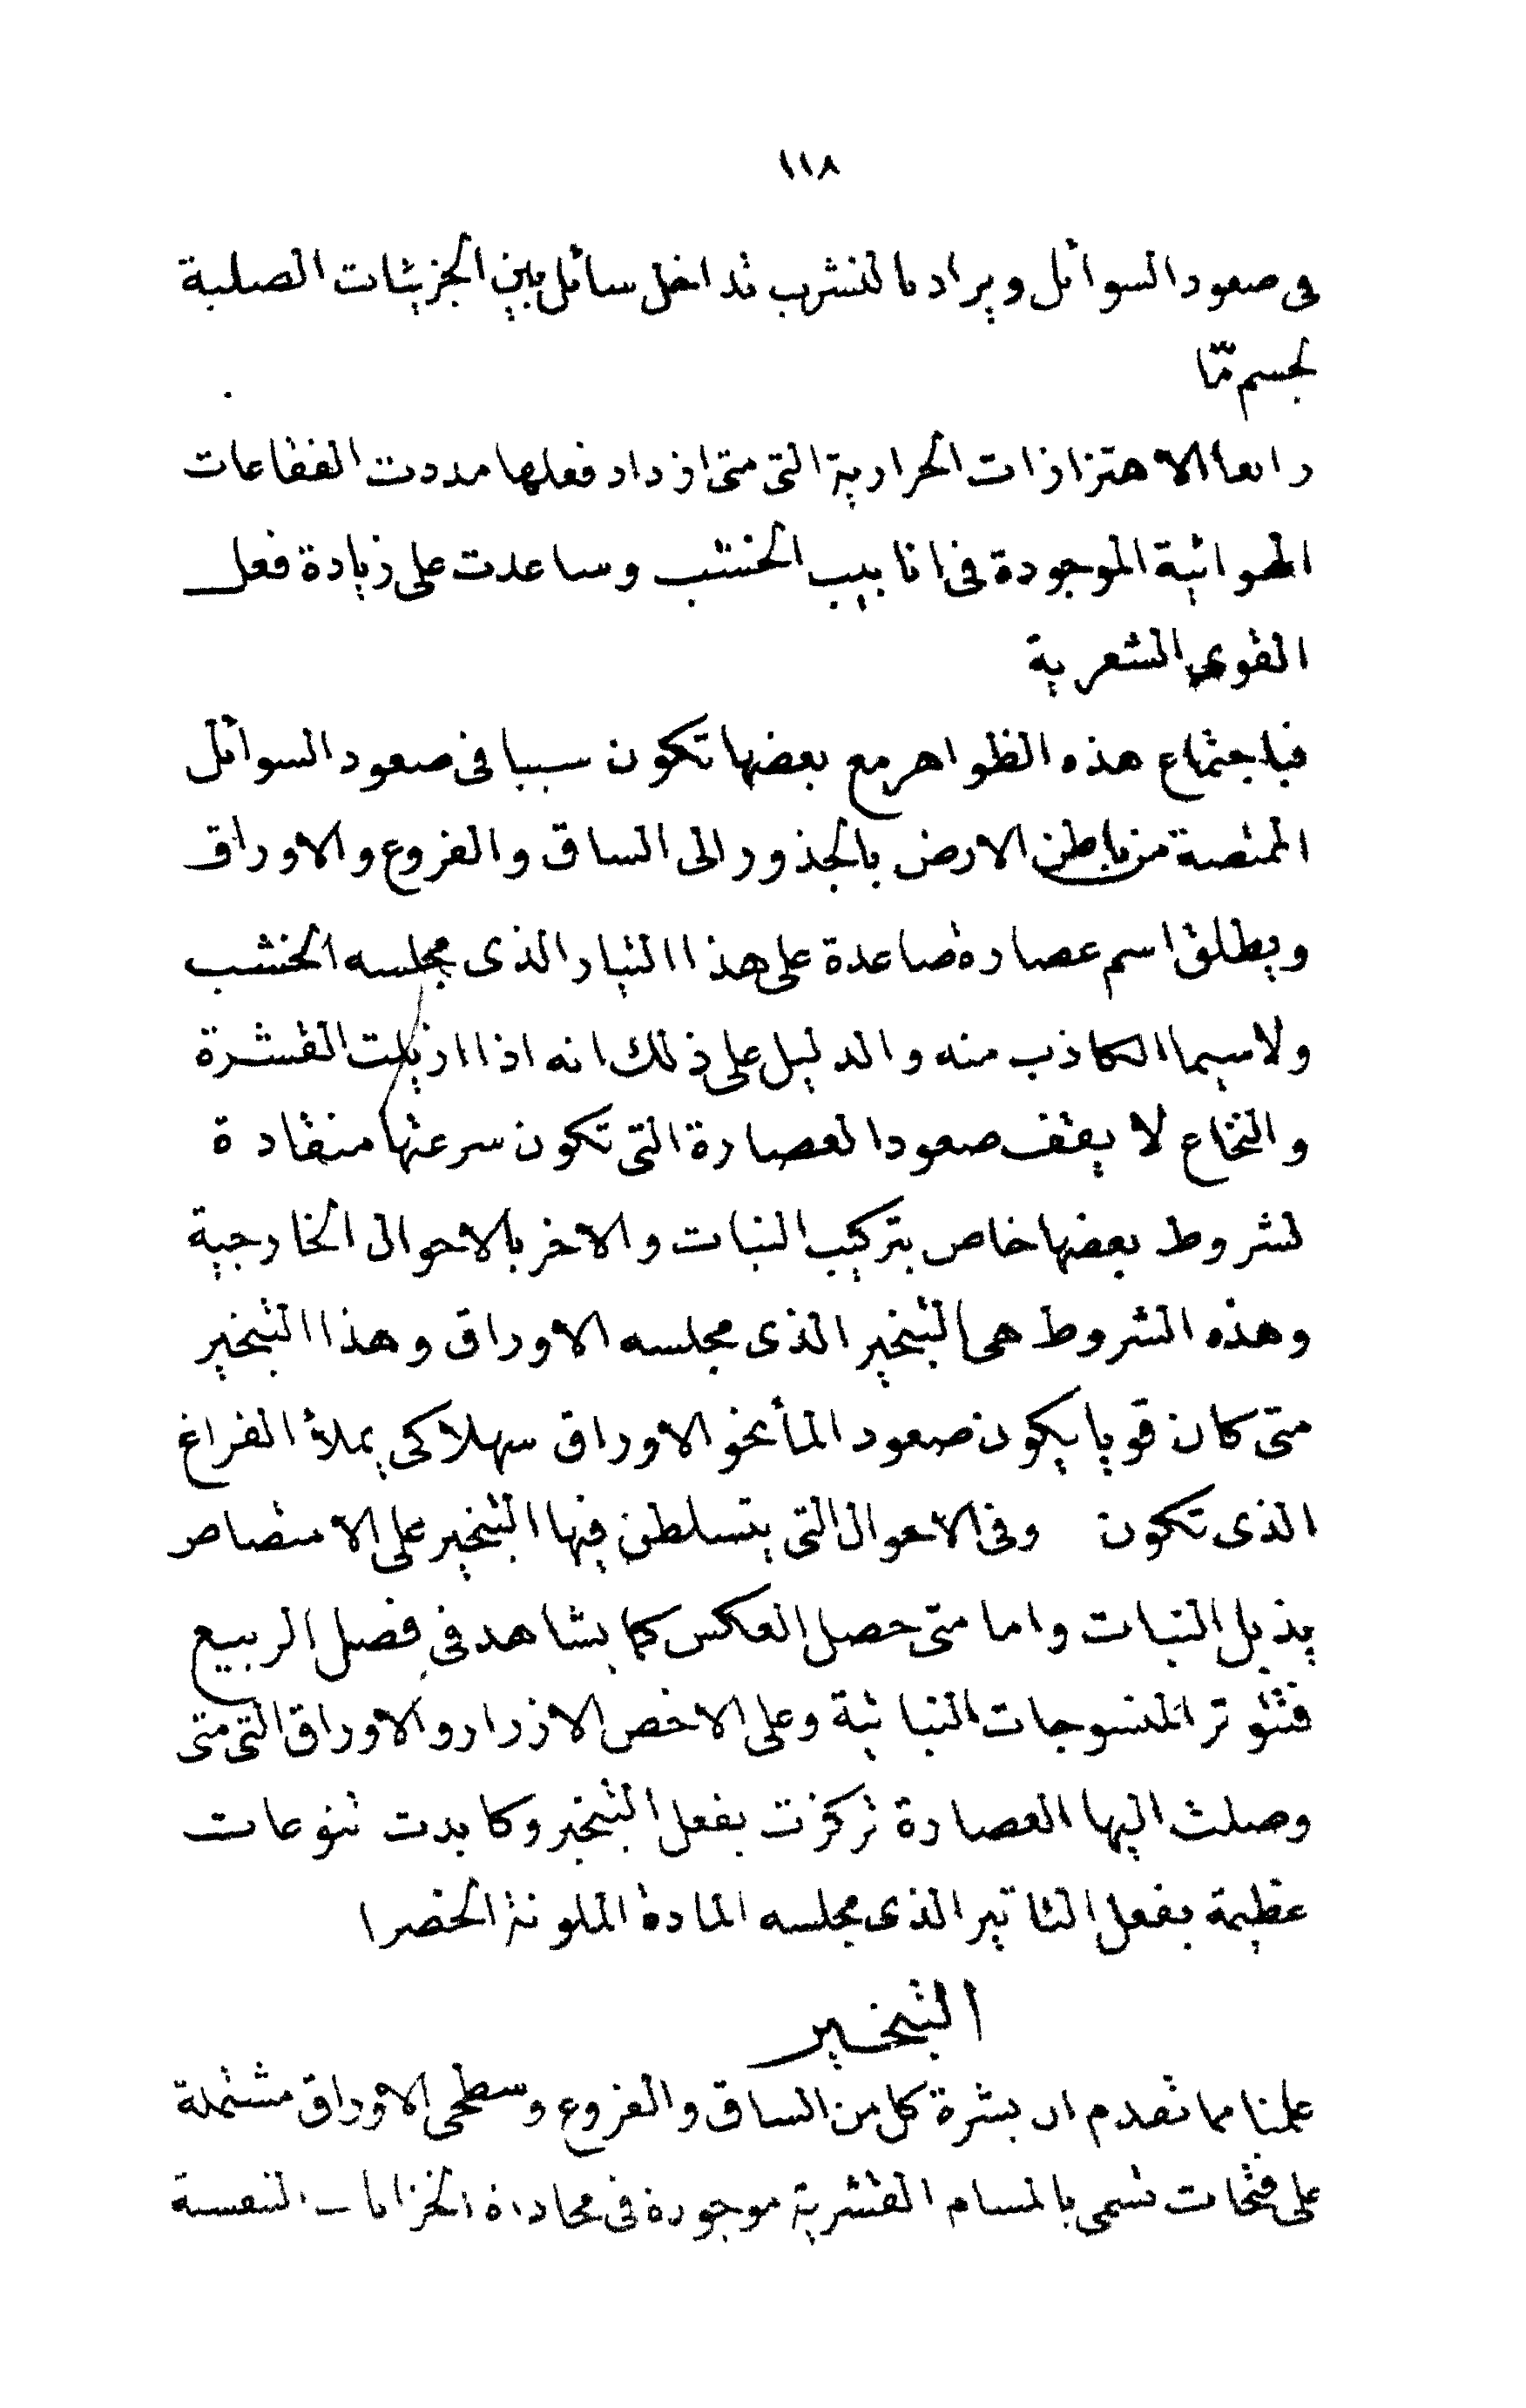 ١١٨
فى صعود السوائل ويراد بالتشرب تداخل سائل بين الجزيئات الصلبة
لجسم مّا
رابعا الاهتزازات الحرارية التى متى ازداد فعلها مددت الفقاعات
الهوائية الموجودة فى انابيب الخشب وساعدت على زيادة فعل
القوى الشعرية
فباجتماع هذه الظواهر مع بعضها تكون سببا فى صعود السوائل
الممتصة من باطن الارض بالجذور الى الساق والفروع والاوراق
ويطلق اسم عصارة صاعدة على هذا التيار الذى مجلسه الخشب
ولاسيما الكاذب منه والدليل على ذلك انه اذا ازيلت القشرة
والنخاع لا يقف صعود العصارة التى تكون سرعتها منقادة
لشروط بعضها خاص بتركيب النبات والاخر بالاحوال الخارجية
وهذه الشروط هى التبخير الذى مجلسه الاوراق وهذا التبخير
متى كان قويا يكون صعود المأ نحو الاوراق سهلا كى يملأ الفراغ
الذى تكون وفى الاحوال التى يتسلطن فيها التبخير على الامتصاص
يذبل النبات واما متى حصل العكس كما يشاهد فى فصل الربيع
فتتوتر المنسوجات النباتية وعلى الاخص الازرار والاوراق التى متى
وصلت اليها العصارة تركزت بفعل التبخير وكابدت تنوعات
عظيمة بفعل التاثير الذى مجلسه المادة الملونة الخضرا
التبخير
علمنا مما تقدم ان بشرة كل من الساق والفروع وسطحى الاوراق مشتملة
على فتحات تسمى بالمسام القشرية موجودة فى محاذاة الخزانات التنفسية